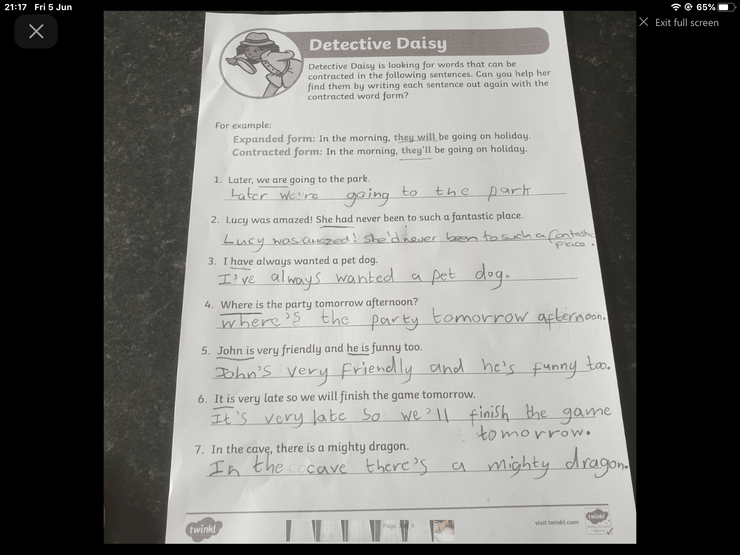 21:17 Fri 5 Jun
65%
Exit full screen
Detective Daisy
Detective Daisy is looking for words that can be
contracted in the following sentences. Can you help her
find them by writing each sentence out again with the
contracted word form?
For example:
Expanded form: In the morning, they will be going on holiday.
Contracted form: In the morning, they'll be going on holiday.
1. Later, we are going to the park.
Later We're going to the park
2. Lucy was amazed! She had never been to such a fantastic place.
Lucy was amazed! She'd never been to such a fantastic
place.
3. I have always wanted a pet dog.
I've always wanted a pet dog.
4. Where is the party tomorrow afternoon?
where's the party tomorrow afternoon.
5. John is very friendly and he is funny too.
John's very friendly and he's funny too.
6. It is very late so we will finish the game tomorrow.
It's very late so we'll finish the game
tomorrow.
7. In the cave, there is a mighty dragon.
In the cave there's a mighty dragon.
twinkl
Page
visit twinkl.com
twinkl